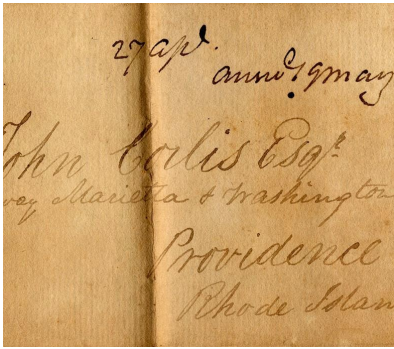 27 apl.
annd 19 may
John Corlis Esqr
way Marietta & Washington
Providence
Rhode Islan